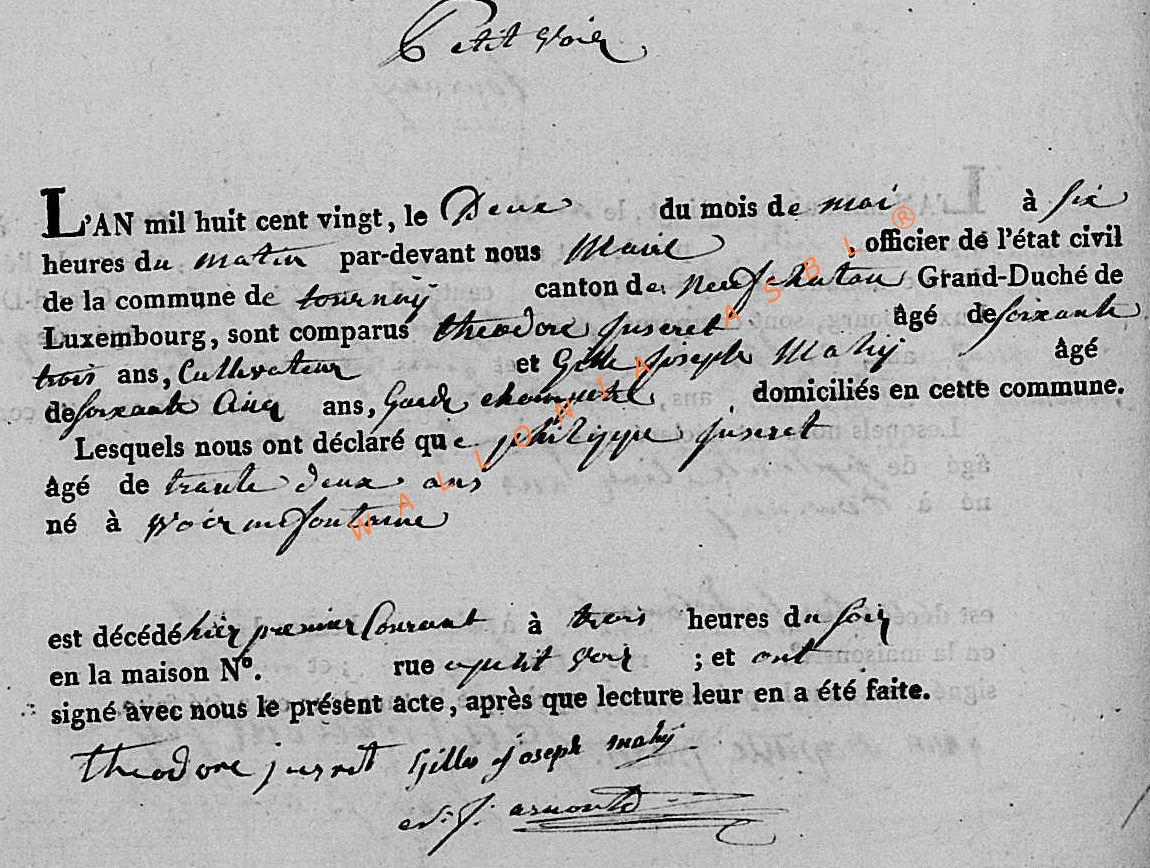 Petit Voir
L'AN mil huit cent vingt, le Deux du mois de mai à six
heures du matin par-devant nous Maire , officier de l'état civil
de la commune de tournay canton de Neufchatau Grand-Duché de
Luxembourg, sont comparus theodore juseret âgé de soixante
trois ans, Cultivateur et Gille joseph Mahij âgé
de soixante Cinq ans, Garde champetre , domiciliés en cette commune.
Lesquels nous ont déclaré que philippe juseret
âgé de trante deux ans
né à
est décédé hier premier Courant à trois heures du soir
en la maison N°. rue a petit voir ; et ont
signé avec nous le présent acte, après que lecture leur en a été faite.
theodore jusret Gilles joseph mahij
arnould
WALLONIA ASBL ®